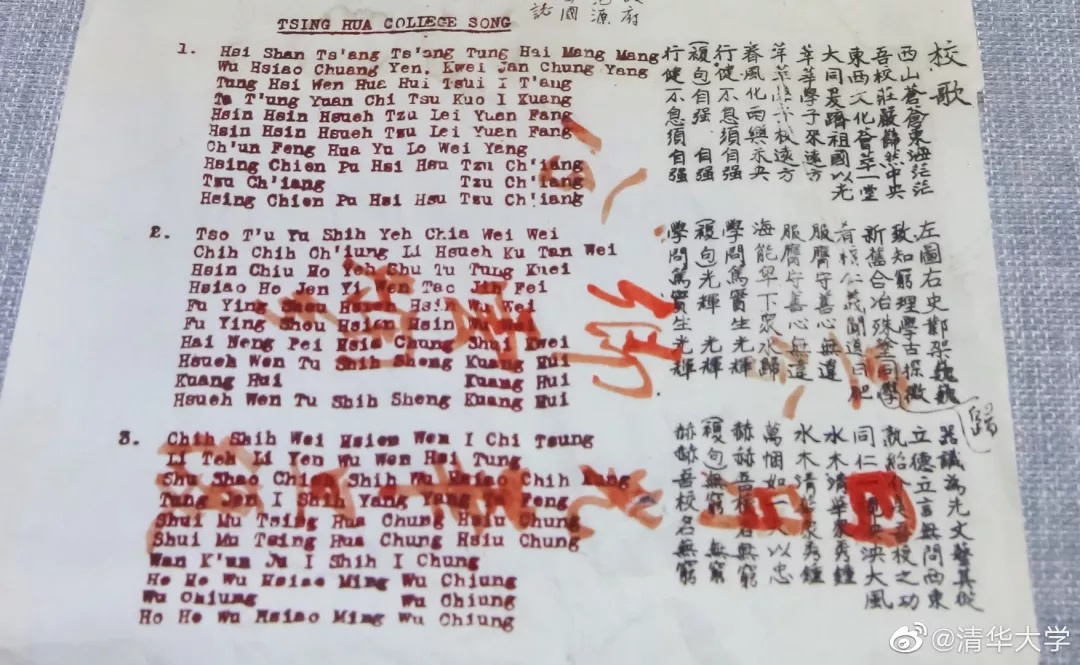 政府
范源
誌 國
TSING HUA COLLEGE SONG
1. Hsi Shan Ts'ang Ts'ang Tung Hai Mang Mang
Wu Hsiao Chuang Yen, Kwei Jan Chung Yang
Tung Hsi Wen Hua Hui Tsui I T'ang
Ta T'ung Yuan Chi Tsu Kuo I Kuang
Hsin Hsin Hsueh Tzu Lei Yuen Fang
Hsin Hsin Hsueh Tzu Lei Yuen Fang
Ch'un Feng Hua Yu Lo Wei Yang
Hsing Chien Pu Hsi Hsu Tzu Ch'iang
Tzu Ch'iang Tzu Ch'iang
Hsing Chien Pu Hsi Hsu Tzu Ch'iang
2. Tso T'u Yu Shih Yeh Chia Wei Wei
Chih Chih Ch'iung Li Hsueh Ku Tan Wei
Hsin Chiu Ho Yeh Shu Tu Tung Kuei
Hsiao Ho Jen Yi Wen Tao Jih Fei
Fu Ying Shou Hsien Hsin Wu Wei
Fu Ying Shou Hsien Hsin Wu Wei
Hai Neng Pei Hsia Chung Shui Kwei
Hsueh Wen Tu Shih Sheng Kuang Hui
Kuang Hui Kuang Hui
Hsueh Wen Tu Shih Sheng Kuang Hui
3. Chih Shih Wei Hsien Wen I Chi Tsung
Li Teh Li Yen Wu Wen Hsi Tung
Shu Shao Chieh Shih Wu Hsiao Chih Kung
Tung Jen I Shih Yang Yang Ta Feng
Shui Mu Tsing Hua Chung Hsiu Chung
Shui Mu Tsing Hua Chung Hsiu Chung
Wan K'un Ju I Shih I Chung
Ho Ho Wu Hsiao Ming Wu Chiung
Wu Chiung Wu Chiung
Ho Ho Wu Hsiao Ming Wu Chiung
校歌
西山蒼蒼東海茫茫
吾校莊嚴巋然中央
東西文化薈萃一堂
大同爰躋祖國以光
莘莘學子來遠方
莘莘學子來遠方
春風化雨樂未央
行健不息須自强
(複句)自强 自强
行健不息須自强
左圖右史鄴架巍巍
致知窮理學古探微
新舊合冶殊途同學
歸
肴核仁義聞道日肥
服膺守善心無違
服膺守善心無違
海能卑下衆水歸
學問篤實生光輝
(複句)光輝 光輝
學問篤實生光輝
器識爲先文藝其從
立德立言無問西東
孰紹介是吾校之功
同仁一視泱泱大風
水木清華衆秀鐘
水木清華衆秀鐘
萬悃如一矢以忠
赫赫吾校名無窮
(複句)無窮 無窮
赫赫吾校名無窮
@清华大学